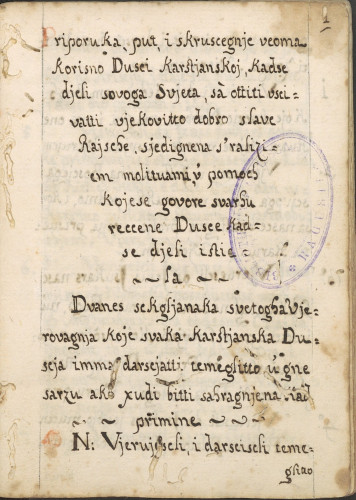 1
Priporuka, put i skruscegnje veoma
korisno Dusei karstjanskoj, kadse
djeli sovoga Svjeta, sà ottiti usci-
vatti vjekovitto dobro slave
Rajsche, sjedignena s'razlizi-
em molituami, ù pomoch
kojese govore svarhu
reccene Dusee kad-
se djeli istie
~ ~ la ~
Dvanes sekgljanaka svetogha Vje-
rovagnja koje svaka karstjanska Du-
scja imma darscjatti temeglitto ù gne
sarzu ako xudi bitti sahragnjena
~ ~ primine ~ ~
N: Vjerujèseli, i darsciseli teme-
gliao